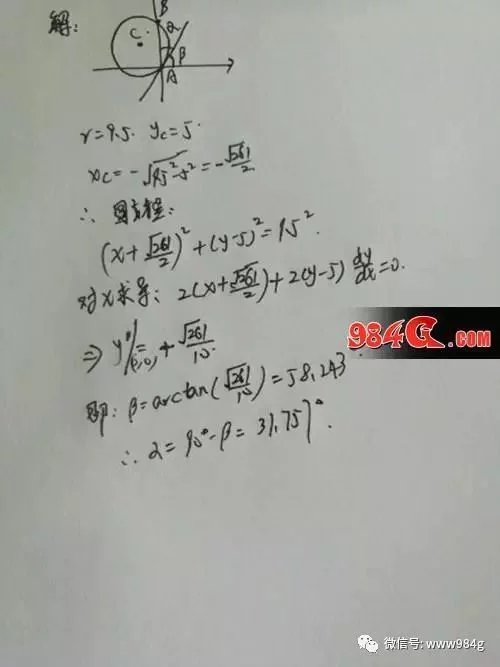 解:
B
C
α
β
A
r=9.5. yc=5.
xc=-√(9.5²-5²)=-√261/2
∴ 圆方程:
(x+√261/2)²+(y-5)²=9.5².
对x求导: 2(x+√261/2)+2(y-5)dy/dx=0.
⇒ y'|(0,0)=+√261/10.
即: β=arctan(√261/10)=58.243°.
∴ α=90°-β=31.757°.
984G.COM
微信号: www984g